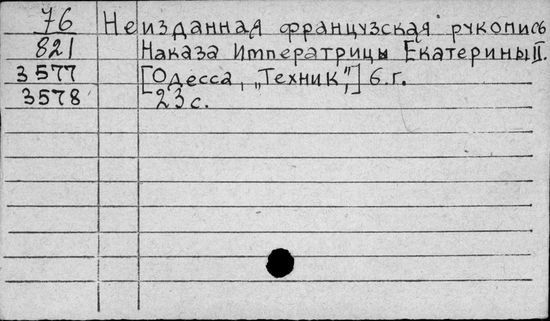 76 Неизданная французская рукопись
821 Наказа Императрицы Екатерины II.
3577 [Одесса, „Техник",] б.г.
3578 23 с.